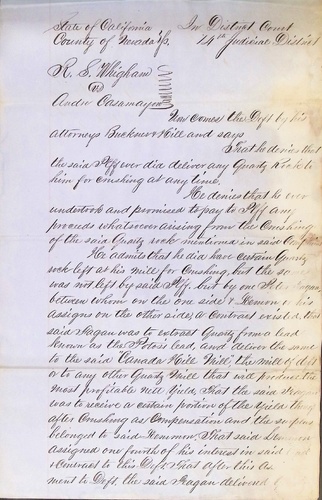 State of California In District Court
County of Nevada ss. 14th Judicial District
R. S. Whigham
vs
Andw Casamayou
Now comes the Deft by his
attorneys Buckner & Hill and says
That he denies that
the said Plff ever did deliver any Quartz Rock to
him for crushing at any time,
He denies that he ever
undertook and promised to pay to Plff any
proceeds whatsoever arising from the Crushing
of the said Quartz rock mentioned in said
He admits that he did have certain Quartz
rock left at his Mill for Crushing, but the same
was not left by said Plff. but by one Peter
between whom on the one side & Denmon & his
assigns on the other side, a Contract existed, that
said Fagan was to extract Quartz from a lead
known as the lead, and deliver the same
to the said "Canada Hill Mill" the mill of deft
or to any other Quartz Mill that will produce the
most profitable nett yield, That the said
was to receive a certain portion of the yield
after Crushing as Compensation and the surplus
belonged to said Denmon. That said Denmon
assigned one fourth of his interest in said
& contract to this Deft. that after this
ment to Deft. the said Fagan delivered